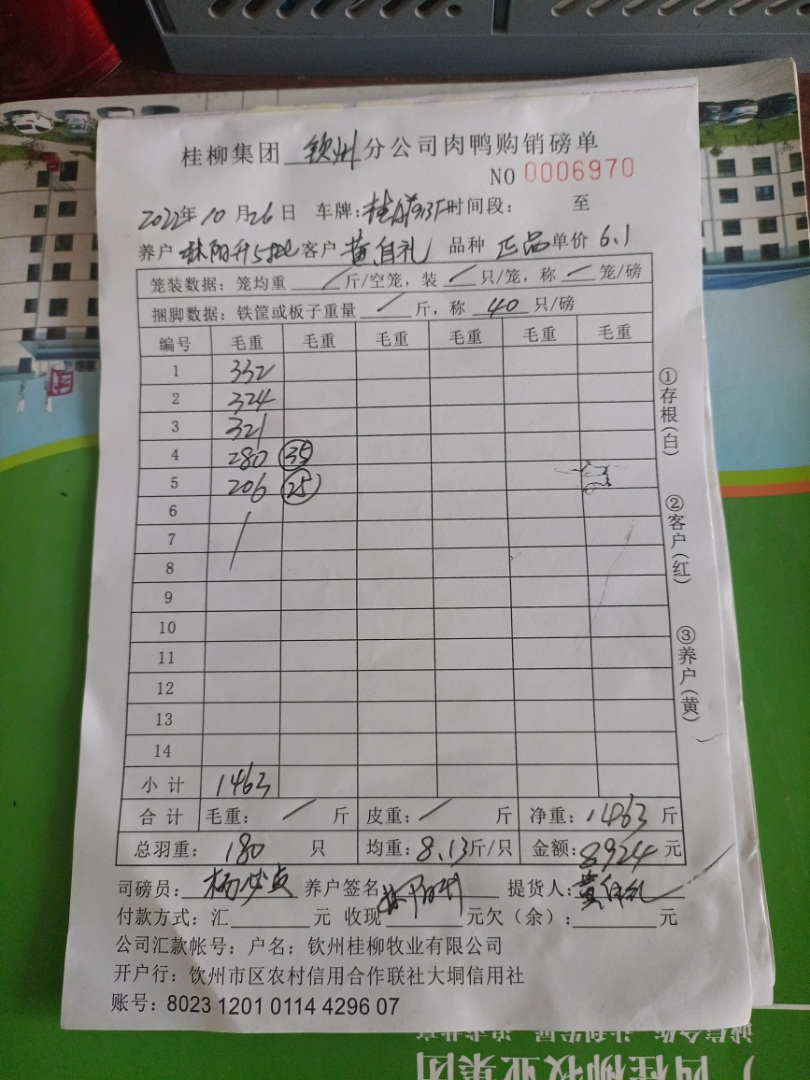 桂柳集团 钦州 分公司肉鸭购销磅单
NO 0006970
2022年10月26日 车牌:桂 时间段: 至
养户 林阳升 客户 黄自礼 品种 正品 单价 6.1
笼装数据:笼均重 / 斤/空笼,装 / 只/笼,称 / 笼/磅
捆脚数据:铁筐或板子重量 / 斤,称 40 只/磅
编号 毛重 毛重 毛重 毛重 毛重 毛重
1 332
2 324
3 321
4 280 35
5 206 25
6
7
8
9
10
11
12
13
14
小计 1463
合计 毛重: / 斤 皮重: / 斤 净重: 1463 斤
总羽重: 180 只 均重: 8.13斤/只 金额: 8924 元
司磅员: 养户签名 林阳升 提货人: 黄自礼
付款方式:汇 元 收现 元欠(余): 元
公司汇款帐号:户名:钦州桂柳牧业有限公司
开户行:钦州市区农村信用合作联社大垌信用社
账号:8023 1201 0114 4296 07
①存根(白)
②客户(红)
③养户(黄)
西桂柳牧业集团